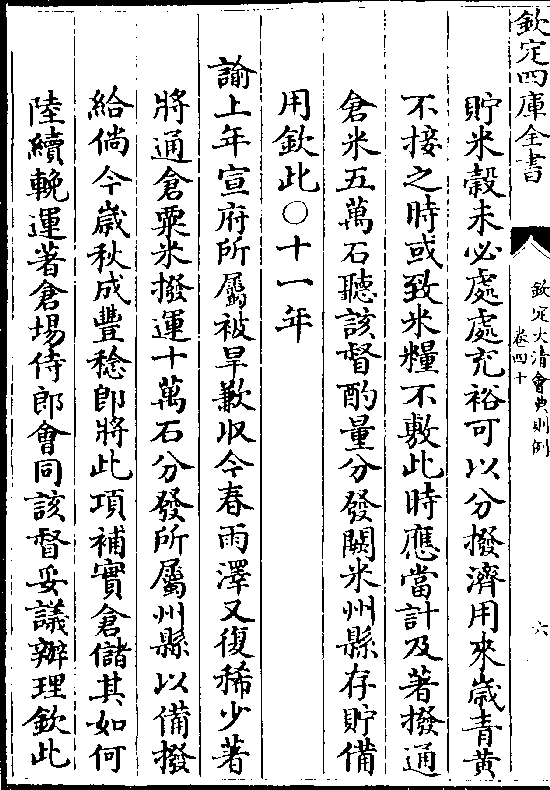 欽定四庫全書
欽定大清會典則例
卷四十
六
貯米穀未必處處充裕可以分撥濟用來歲青黃
不接之時或致米糧不敷此時應當計及著撥通
倉米五萬石聽該督酌量分發闕米州縣存貯備
用欽此○十一年
諭上年宣府所屬被旱歉收今春雨澤又復稀少著
將通倉粟米撥運十萬石分發所屬州縣以備撥
給倘今歲秋成豐稔即將此項補實倉儲其如何
陸續輓運著倉場侍郎會同該督妥議辦理欽此